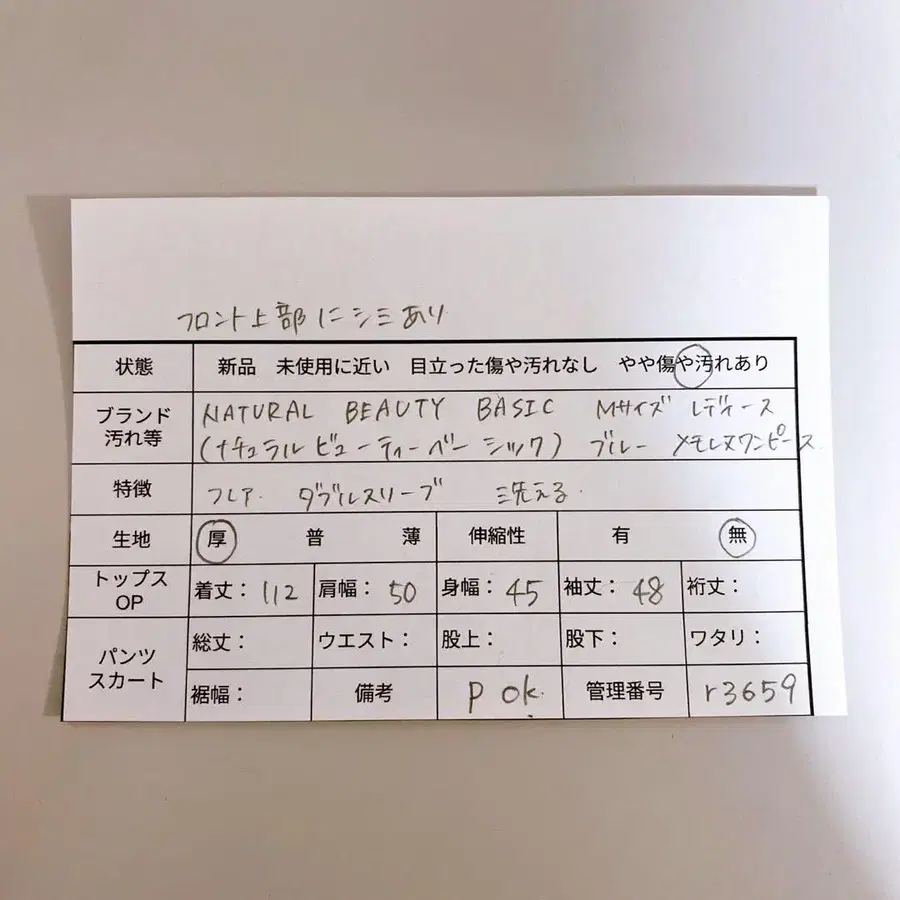 フロント上部にシミあり
状態 新品 未使用に近い 目立った傷や汚れなし やや傷や汚れあり
ブランド 汚れ等 NATURAL BEAUTY BASIC Mサイズ レディース
(ナチュラルビューティーベーシック) ブルー ワンピース
特徴 フレア ダブルスリーブ 洗える
生地 厚 普 薄 伸縮性 有 無
トップス OP 着丈: 112 肩幅: 50 身幅: 45 袖丈: 48 裄丈:
パンツ スカート 総丈: ウエスト: 股上: 股下: ワタリ:
裾幅: 備考 P OK. 管理番号 r3659